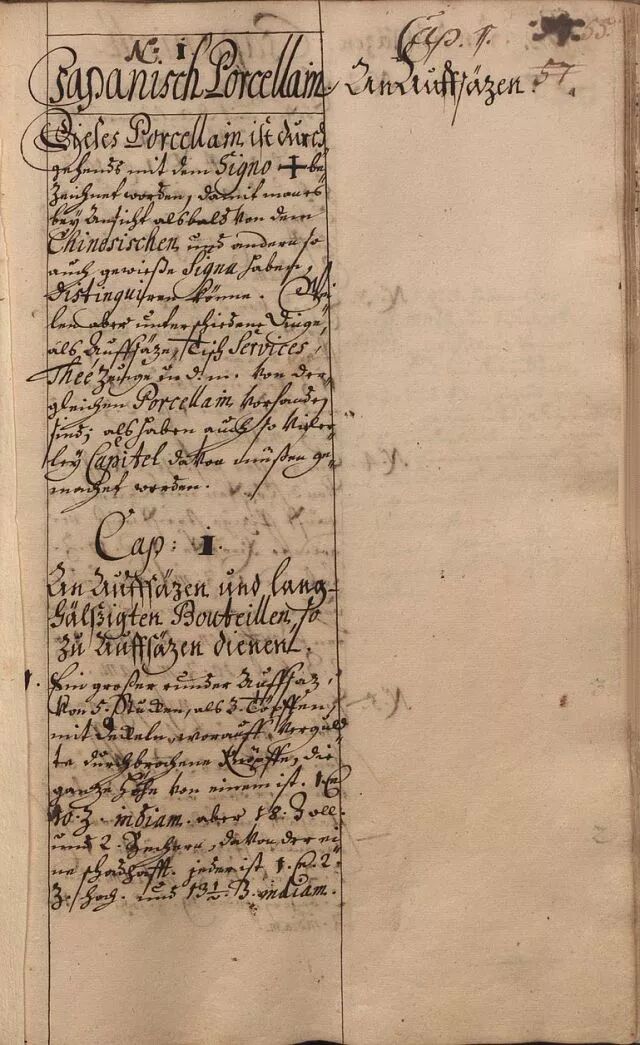 N: 1
Japanisch Porcellain.
Dieses Porcellain ist durch
gehends mit dem Signo + be-
zeichnet worden, damit man es
bey Ansicht alsbald von dem
Chinesischen, und andern so
auch gewieße Signa haben,
distinguiren könne. Wei-
len aber unterschiedene Dinge,
als Auffsäze, Tisch Services,
Theé Zeuge u. d. m. von der-
gleichen Porcellain vorhanden
sind; als haben auch so vieler-
ley Capitel davon müßen ge-
machet werden.
Cap: 1.
An Auffsäzen und lang-
hälßigten Bouteillen, so
zu Auffsäzen dienen.
1. Ein großer runder Auffsaz,
von 5. Stücken, als 3. Töpffen,
mit Deckeln, worauff verguld-
te durchbrochene Knöpffe, die
ganze Höhe von einem ist. 1. E.
10. Z. in diam. aber 18. Zoll
und 2. Bechern, davon der ei-
ne schadhafft. jeder ist 1. E. 2.
Z. hoch. und 13½. Z. in diam.
Cap. 1.
An Auffsäzen.
55.
57.